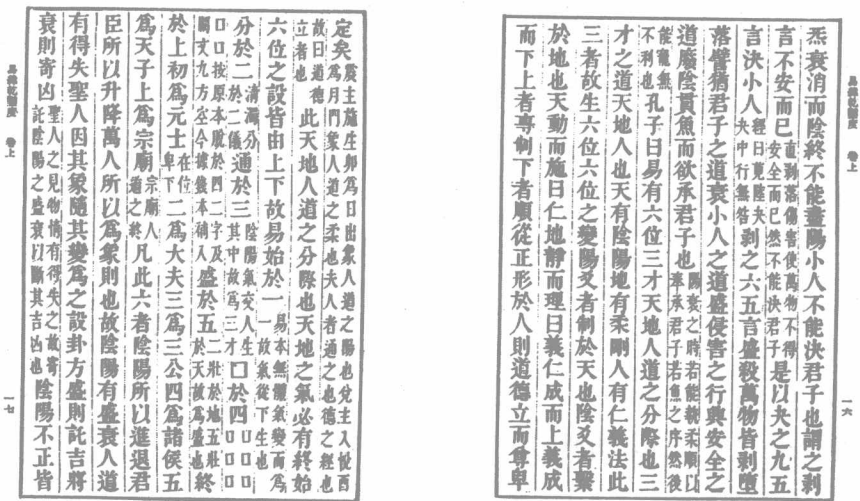 炁衰消而陰終不能盡陽小人不能決君子也謂之剥
言不安而已直剥落傷害使萬物不得安全而已然不能決君子是以夬之九五
言決小人經曰莧陸夬夬中行無咎剥之六五言盛殺萬物皆剥墮
落譬猶君子之道衰小人之道盛侵害之行興安全之
道廢陰貫魚而欲承君子也陽衰之時若能執柔順以奉承君子若魚之序然後
能寵無不利也孔子曰易有六位三才天地人道之分際也三
才之道天地人也天有陰陽地有柔剛人有仁義法此
三者故生六位六位之變陽爻者制於天也陰爻者繫
於地也天動而施曰仁地靜而理曰義仁成而上義成
而下上者專制下者順從正形於人則道德立而尊卑
易緯乾鑿度 卷上
一六
定矣震主施生卯為日出象人道之陽也兌主入悅酉為月門象人道之柔也夫人者通之也德之經也
故曰道德立者也此天地人道之分際也天地之氣必有終始
六位之設皆由上下故易始於一易本無體氣變而為一故氣從下生也
分於二清濁分於二儀通於三陰陽氣交人生其中故為三才口於四口口口口口口
口口按原本脫於四二字及闕文九方空今據錢本補入盛於五二壯於地五壯於天故為盛也終
於上初為元士在位卑下二為大夫三為三公四為諸侯五
為天子上為宗廟宗廟人道之終凡此六者陰陽所以進退君
臣所以升降萬人所以為象則也故陰陽有盛衰人道
有得失聖人因其象隨其變為之設卦方盛則託吉將
衰則寄凶聖人之見物情有得失之故寄託陰陽之盛衰以斷其吉凶也陰陽不正皆
易緯乾鑿度 卷上
一七